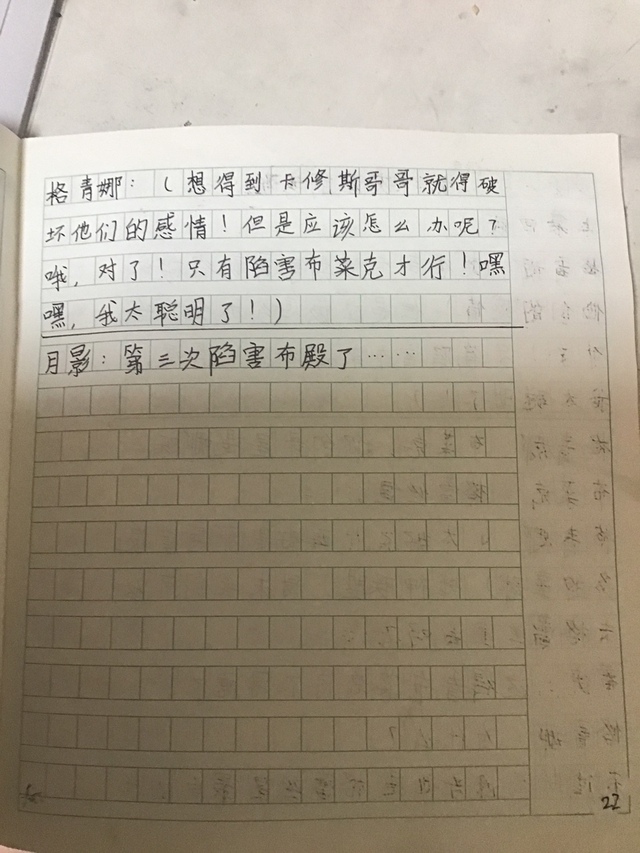 格青娜：（想得到卡修斯哥哥就得破
坏他们的感情！但是应该怎么办呢？
哦，对了！只有陷害布莱克才行！嘿
嘿，我太聪明了！）
月影：第三次陷害布殿了……
22